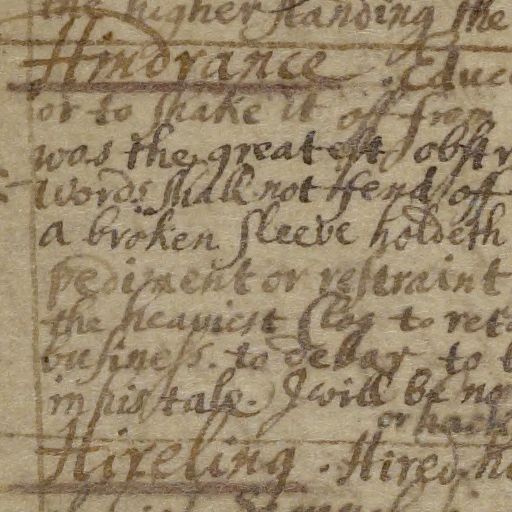 the higher standing the
Hindrance . Educ
or to shake it off from
was the greatest obstr
words shall not fend off
a broken sleeve holdeth
pediment or restraint
the heaviest clog to reta
business. to debar to b
in his tale. I will be no
or hack
Hireling . Hired. h